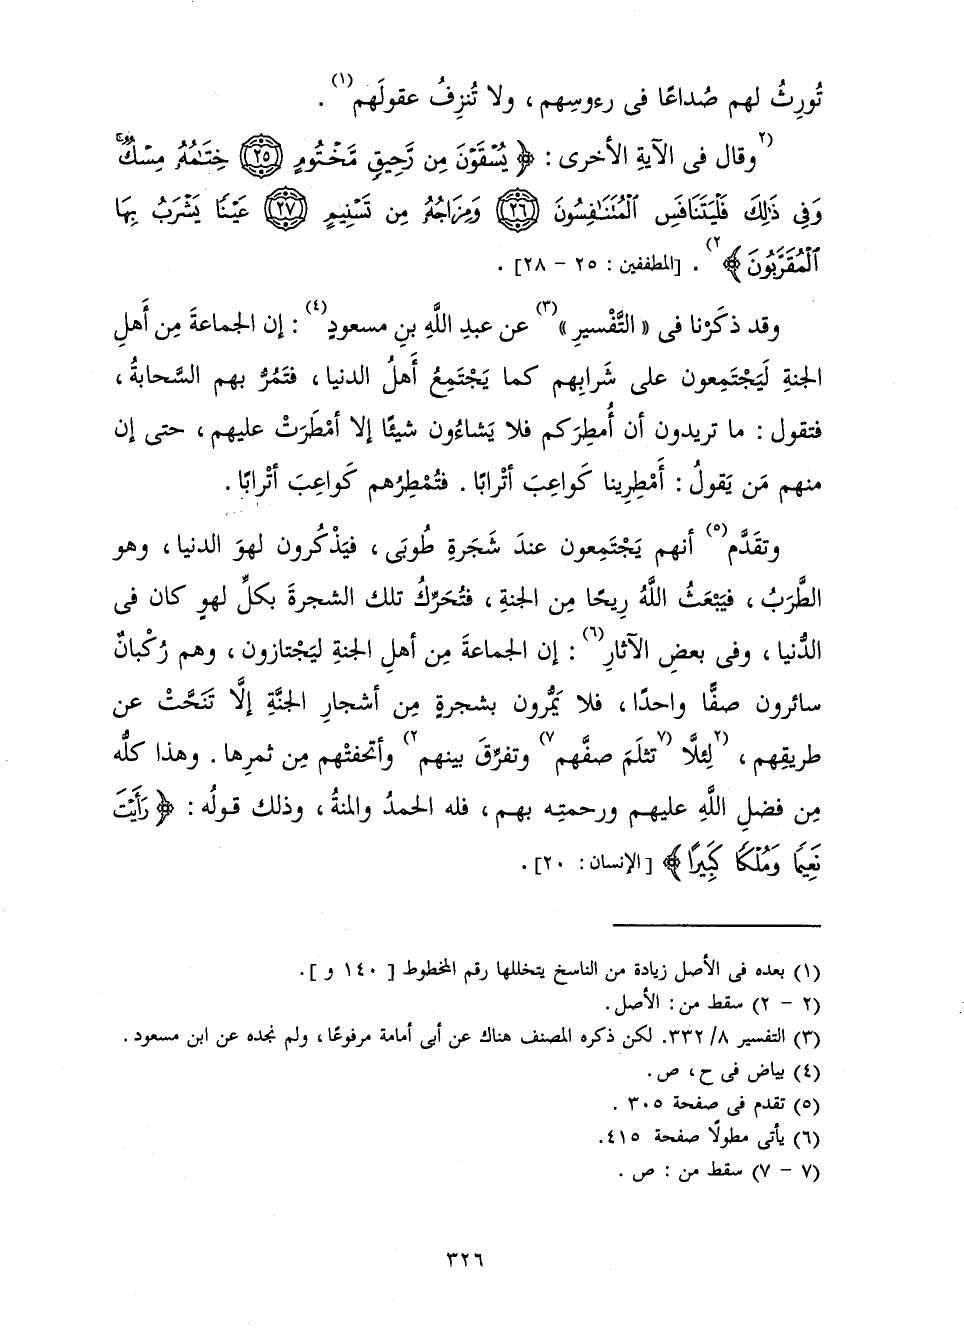 تُورِثُ لهم صُداعًا فى رءوسِهم ، ولا تُنزِفُ عقولَهم(١) .
(٢)وقال فى الآيةِ الأخرى : ﴿ يُسْقَوْنَ مِن رَّحِيقٍ مَّخْتُومٍ ٢٥ خِتَٰمُهُۥ مِسْكٌۚ
وَفِى ذَٰلِكَ فَلْيَتَنَافَسِ ٱلْمُتَنَٰفِسُونَ ٢٦ وَمِزَاجُهُۥ مِن تَسْنِيمٍ ٢٧ عَيْنًا يَشْرَبُ بِهَا
ٱلْمُقَرَّبُونَ ﴾(٢) . [المطففين : ٢٥ – ٢٨] .
وقد ذكَرْنا فى « التَّفْسيرِ »(٣) عن عبدِ اللَّهِ بنِ مسعودٍ(٤) : إن الجماعةَ مِن أهلِ
الجنةِ لَيَجْتَمِعون على شَرابِهم كما يَجْتَمِعُ أهلُ الدنيا ، فتَمُرُّ بهم السَّحابةُ ،
فتقول : ما تريدون أن أُمطِرَكم فلا يَشاءُون شيئًا إلا أمْطَرَتْ عليهم ، حتى إن
منهم مَن يَقولُ : أَمْطِرِينا كَواعِبَ أتْرابًا . فتُمْطِرُهم كَواعِبَ أتْرابًا .
وتقَدَّم(٥) أنهم يَجْتَمِعون عندَ شَجَرةِ طُوبَى ، فيَذْكُرون لهوَ الدنيا ، وهو
الطَّرَبُ ، فيَبْعَثُ اللَّهُ رِيحًا مِن الجنةِ ، فتُحَرِّكُ تلك الشجرةَ بكلِّ لهوٍ كان فى
الدُّنيا ، وفى بعضِ الآثارِ(٦) : إن الجماعةَ مِن أهلِ الجنةِ ليَجْتازون ، وهم رُكْبانٌ
سائرون صفًّا واحدًا ، فلا يَمُرُّون بشجرةٍ مِن أشجارِ الجنَّةِ إلَّا تَنَحَّتْ عن
طريقِهم ، (٢)لِئلَّا (٧)تثلَمَ صفَّهم(٧) وتفرِّقَ بينهم(٢) وأتحفتْهم مِن ثمرِها . وهذا كلُّه
مِن فضلِ اللَّهِ عليهم ورحمتِه بهم ، فله الحمدُ والمنةُ ، وذلك قولُه : ﴿ رَأَيْتَ
نَعِيمًا وَمُلْكًا كَبِيرًا ﴾ [الإنسان : ٢٠] .
(١) بعده فى الأصل زيادة من الناسخ يتخللها رقم المخطوط [ ١٤٠ و ] .
(٢ – ٢) سقط من : الأصل .
(٣) التفسير ٨/ ٣٣٢. لكن ذكره المصنف هناك عن أبى أمامة مرفوعًا ، ولم نجده عن ابن مسعود .
(٤) بياض فى ح ، ص .
(٥) تقدم فى صفحة ٣٠٥ .
(٦) يأتى مطولًا صفحة ٤١٥.
(٧ – ٧) سقط من : ص .
٣٢٦